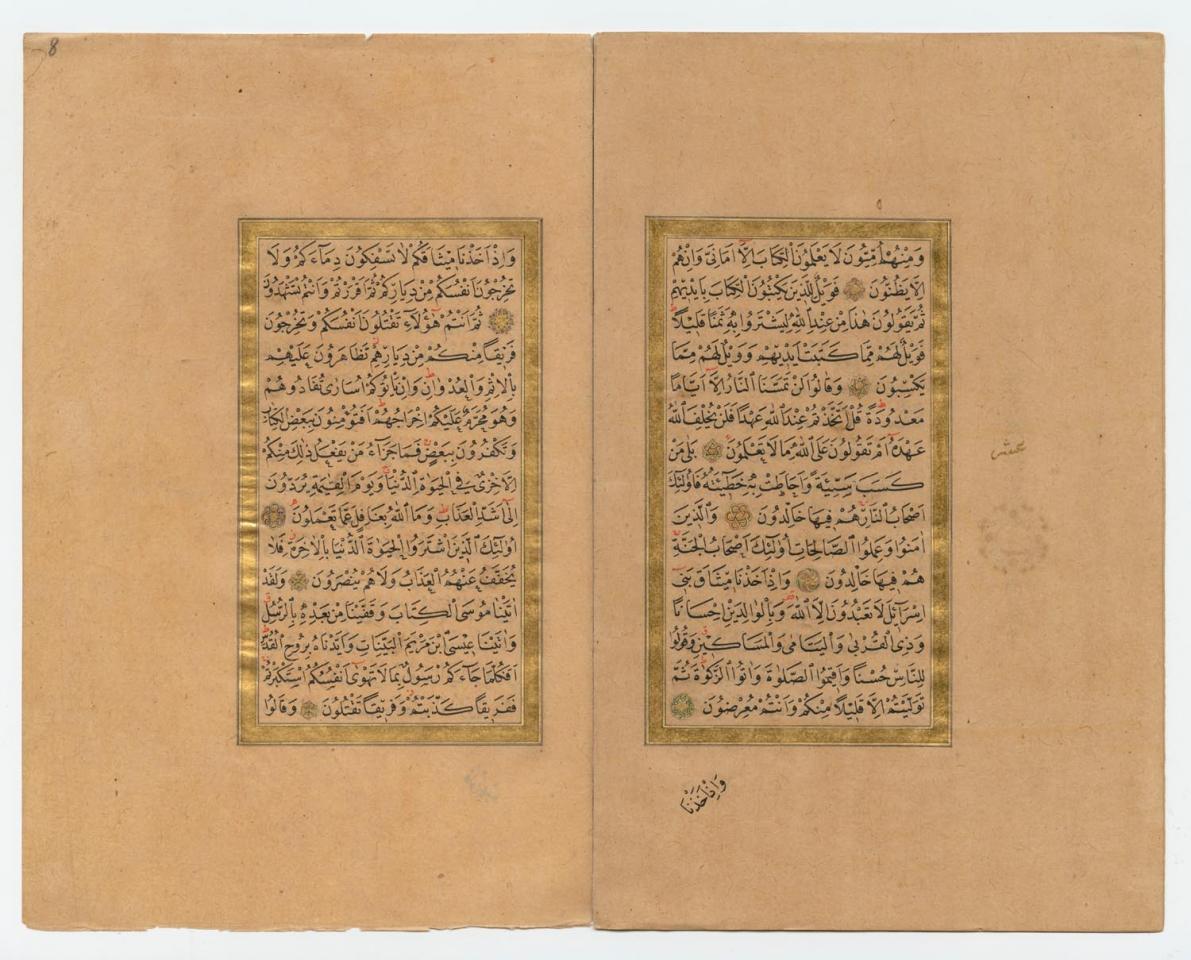 وَمِنْهُمْ اُمِّيُّونَ لَا يَعْلَمُونَ الْكِتَابَ اِلَّا اَمَانِىَّ وَاِنْ هُمْ
اِلَّا يَظُنُّونَ فَوَيْلٌ لِلَّذِينَ يَكْتُبُونَ الْكِتَابَ بِاَيْدِيهِمْ
ثُمَّ يَقُولُونَ هٰذَا مِنْ عِنْدِ اللّٰهِ لِيَشْتَرُوا بِهِ ثَمَنًا قَلِيلًا
فَوَيْلٌ لَهُمْ مِمَّا كَتَبَتْ اَيْدِيهِمْ وَوَيْلٌ لَهُمْ مِمَّا
يَكْسِبُونَ وَقَالُوا لَنْ تَمَسَّنَا النَّارُ اِلَّا اَيَّامًا
مَعْدُودَةً قُلْ اَتَّخَذْتُمْ عِنْدَ اللّٰهِ عَهْدًا فَلَنْ يُخْلِفَ اللّٰهُ
عَهْدَهُ اَمْ تَقُولُونَ عَلَى اللّٰهِ مَا لَا تَعْلَمُونَ بَلٰى مَنْ
كَسَبَ سَيِّئَةً وَاَحَاطَتْ بِهِ خَطِيئَتُهُ فَاُولٰئِكَ
اَصْحَابُ النَّارِ هُمْ فِيهَا خَالِدُونَ وَالَّذِينَ
اٰمَنُوا وَعَمِلُوا الصَّالِحَاتِ اُولٰئِكَ اَصْحَابُ الْجَنَّةِ
هُمْ فِيهَا خَالِدُونَ وَاِذْ اَخَذْنَا مِيثَاقَ بَنِى
اِسْرَائِلَ لَا تَعْبُدُونَ اِلَّا اللّٰهَ وَبِالْوَالِدَيْنِ اِحْسَانًا
وَذِى الْقُرْبٰى وَالْيَتَامٰى وَالْمَسَاكِينِ وَقُولُوا
لِلنَّاسِ حُسْنًا وَاَقِيمُوا الصَّلٰوةَ وَاٰتُوا الزَّكٰوةَ ثُمَّ
تَوَلَّيْتُمْ اِلَّا قَلِيلًا مِنْكُمْ وَاَنْتُمْ مُعْرِضُونَ
وَاِذْ اَخَذْنَا
عشر
8
وَاِذْ اَخَذْنَا مِيثَاقَكُمْ لَا تَسْفِكُونَ دِمَاءَكُمْ وَلَا
تُخْرِجُونَ اَنْفُسَكُمْ مِنْ دِيَارِكُمْ ثُمَّ اَقْرَرْتُمْ وَاَنْتُمْ تَشْهَدُونَ
ثُمَّ اَنْتُمْ هٰؤُلَاءِ تَقْتُلُونَ اَنْفُسَكُمْ وَتُخْرِجُونَ
فَرِيقًا مِنْكُمْ مِنْ دِيَارِهِمْ تَظَاهَرُونَ عَلَيْهِمْ
بِالْاِثْمِ وَالْعُدْوَانِ وَاِنْ يَاْتُوكُمْ اُسَارٰى تُفَادُوهُمْ
وَهُوَ مُحَرَّمٌ عَلَيْكُمْ اِخْرَاجُهُمْ اَفَتُؤْمِنُونَ بِبَعْضِ الْكِتَابِ
وَتَكْفُرُونَ بِبَعْضٍ فَمَا جَزَاءُ مَنْ يَفْعَلُ ذٰلِكَ مِنْكُمْ
اِلَّا خِزْىٌ فِى الْحَيٰوةِ الدُّنْيَا وَيَوْمَ الْقِيٰمَةِ يُرَدُّونَ
اِلٰى اَشَدِّ الْعَذَابِ وَمَا اللّٰهُ بِغَافِلٍ عَمَّا تَعْمَلُونَ
اُولٰئِكَ الَّذِينَ اشْتَرَوُا الْحَيٰوةَ الدُّنْيَا بِالْاٰخِرَةِ فَلَا
يُخَفَّفُ عَنْهُمُ الْعَذَابُ وَلَا هُمْ يُنْصَرُونَ وَلَقَدْ
اٰتَيْنَا مُوسَى الْكِتَابَ وَقَفَّيْنَا مِنْ بَعْدِهِ بِالرُّسُلِ
وَاٰتَيْنَا عِيسَى ابْنَ مَرْيَمَ الْبَيِّنَاتِ وَاَيَّدْنَاهُ بِرُوحِ الْقُدُسِ
اَفَكُلَّمَا جَاءَكُمْ رَسُولٌ بِمَا لَا تَهْوٰى اَنْفُسُكُمُ اسْتَكْبَرْتُمْ
فَفَرِيقًا كَذَّبْتُمْ وَفَرِيقًا تَقْتُلُونَ وَقَالُوا